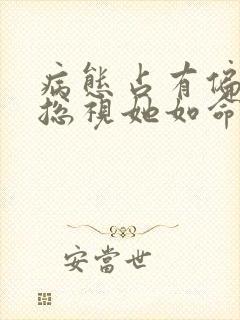 病態占有偏
總視她如命
安當世